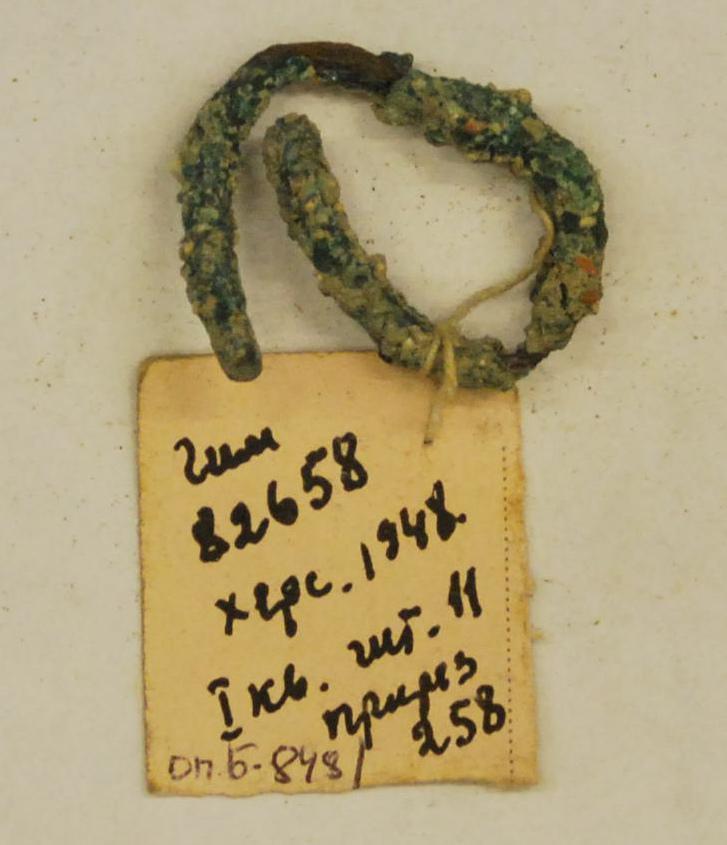 гим
82658
херс. 1948.
I кв. шт. 11
прирез
258
оп.Б-848/